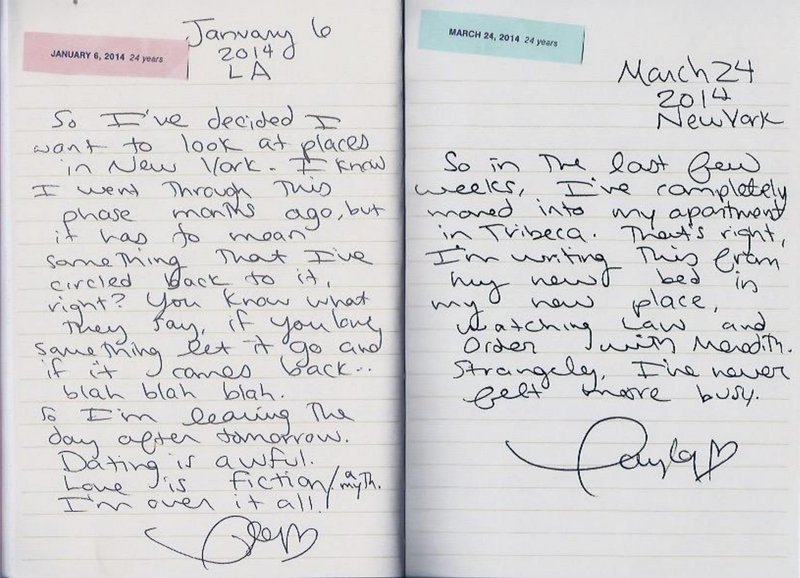 JANUARY 6, 2014 24 years
January 6
2014
LA
So I've decided I
want to look at places
in New York. I know
I went through this
phase months ago, but
it has to mean
something that I've
circled back to it,
right? You know what
they say, if you love
something let it go and
if it comes back..
blah blah blah.
So I'm leaving the
day after tomorrow.
Dating is awful.
Love is fiction/a myth.
I'm over it all!
MARCH 24, 2014 24 years
March 24
2014
New York
So in the last few
weeks, I've completely
moved into my apartment
in Tribeca. That's right,
I'm writing this from
my new bed in
my new place,
watching Law and
Order with Meredith.
Strangely, I've never
felt more busy.
Taylor